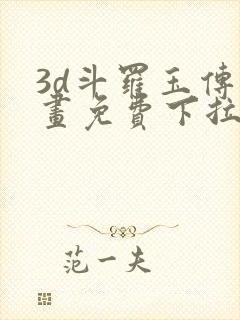 3d斗羅玉傳
畫免費下拉
范一夫